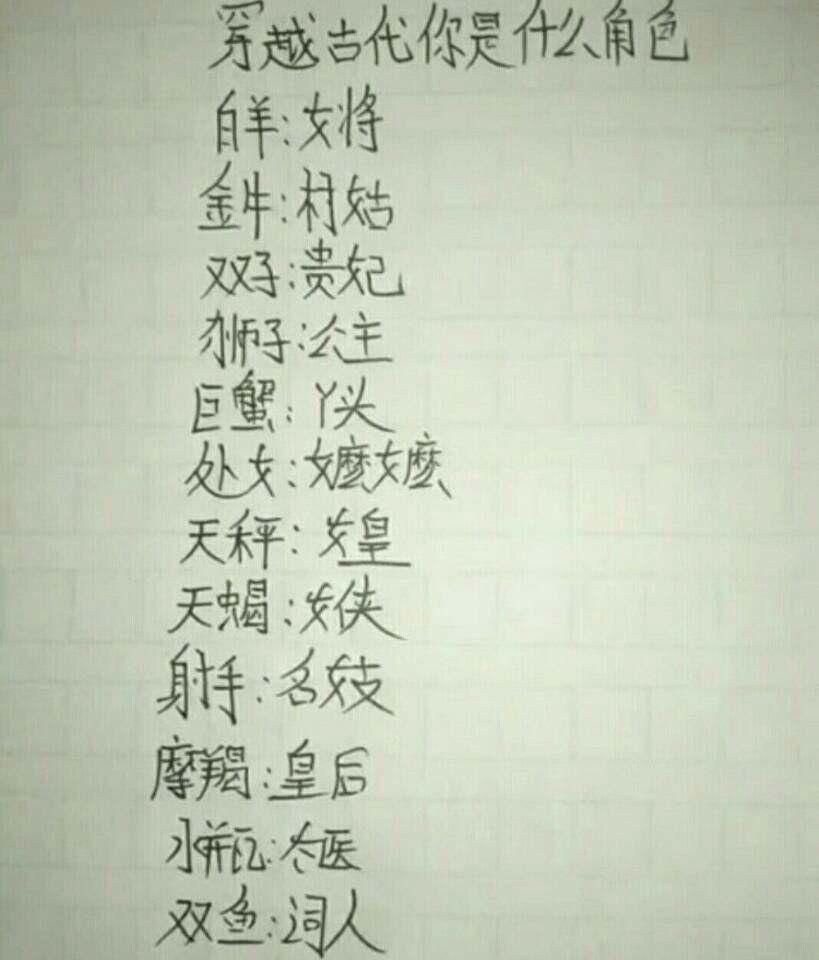 穿越古代你是什么角色
白羊:女将
金牛:村姑
双子:贵妃
狮子:公主
巨蟹:丫头
处女:嬷嬷
天秤:女皇
天蝎:女侠
射手:名妓
摩羯:皇后
水瓶:太医
双鱼:词人